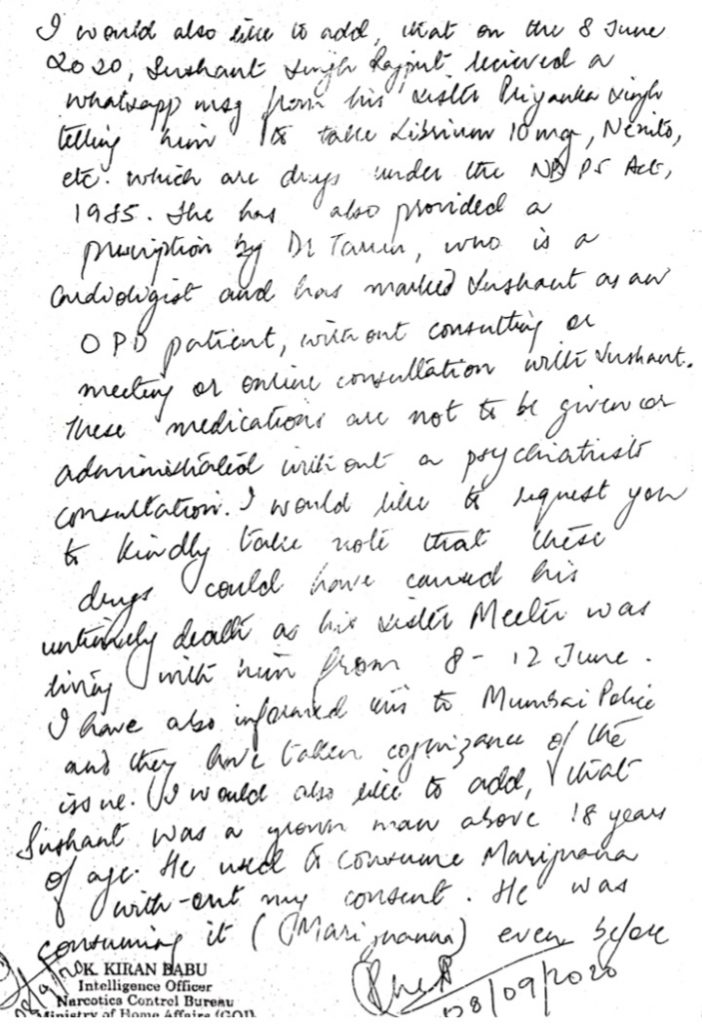 I would also like to add, that on the 8 June
2020, Sushant Singh Rajput recieved a
whatsapp msg from his sister Priyanka Singh
telling him to take Librium 10 mg, Nexito,
etc. which are drugs under the NDPS Act,
1985. She has also provided a
prescription by Dr Tarun, who is a
Cardiologist and has marked Sushant as an
OPD patient, without consulting or
meeting or online consultation with Sushant.
These medications are not to be given or
administrated without a psychiatrists
consultation. I would like to request you
to kindly take note that these
drugs could have caused his
untimely death as his sister Meetu was
living with him from 8 - 12 June.
I have also informed this to Mumbai Police
and they have taken cognizance of the
issue. I would also like to add, that
Sushant was a grown man above 18 years
of age. He used to consume Marijuana
with-out my consent. He was
consuming it (Marijuanna) even before
K. KIRAN BABU
Intelligence Officer
Narcotics Control Bureau
Ministry of Home Affairs (GOI)
08/09/2020